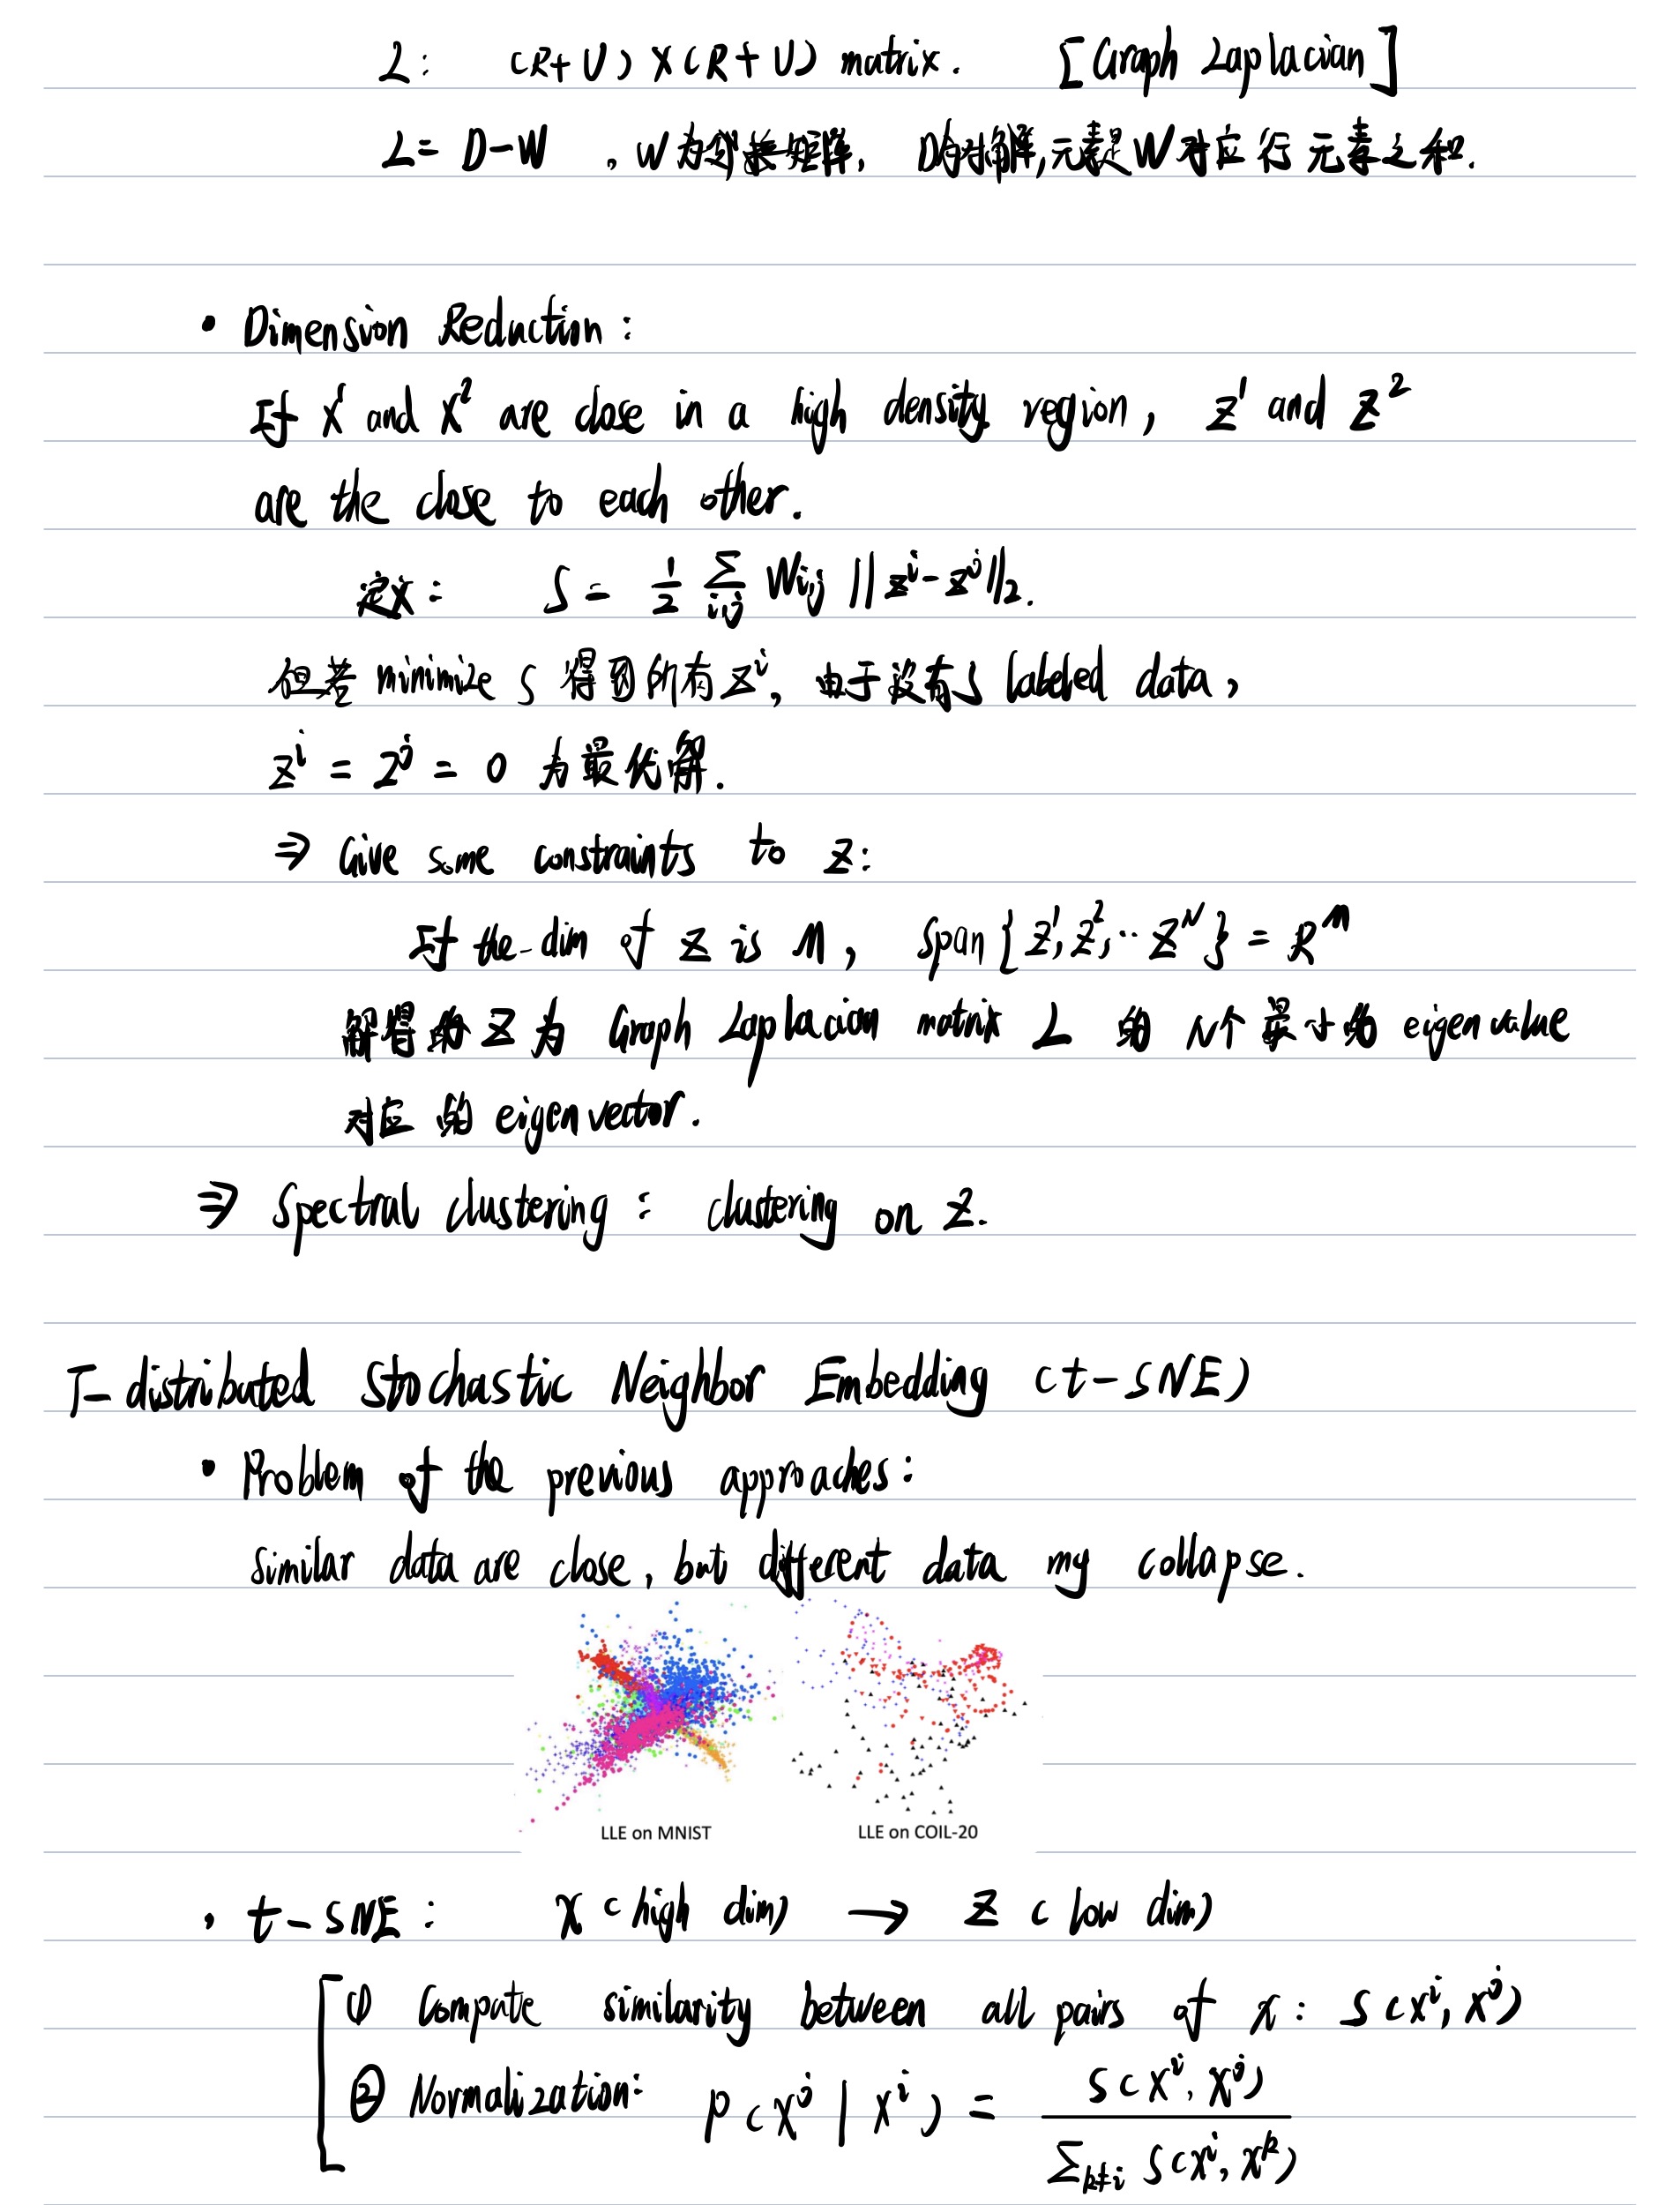 L: (R+U)×(R+U) matrix. [Graph Laplacian]
L = D-W , W为邻接矩阵, D的对角, 元素是W对应行元素之和.
• Dimension Reduction:
If x¹ and x² are close in a high density region, z¹ and z²
are the close to each other.
定义: S = 1/2 Σ_{i,j} W_{i,j} ||z^i - z^j||_2.
但若 minimize S 得到所有 z^i, 由于没有了 labeled data,
z^i = z^j = 0 为最优解.
⇒ Give some constraints to z:
If the dim of z is M, Span{z¹, z², ‥ z^N} = R^M
解得的 z 为 Graph Laplacian matrix L 的 N个最小的 eigenvalue
对应的 eigenvector.
⇒ Spectral clustering: clustering on z.
T-distributed Stochastic Neighbor Embedding (t-SNE)
• Problem of the previous approaches:
Similar data are close, but different data my collapse.
LLE on MNIST LLE on COIL-20
• t-SNE: x (high dim) → z (low dim)
① Compute similarity between all pairs of x: S(x^i, x^j)
② Normalization: P(x^j | x^i) = S(x^i, x^j) / Σ_{k≠i} S(x^i, x^k)